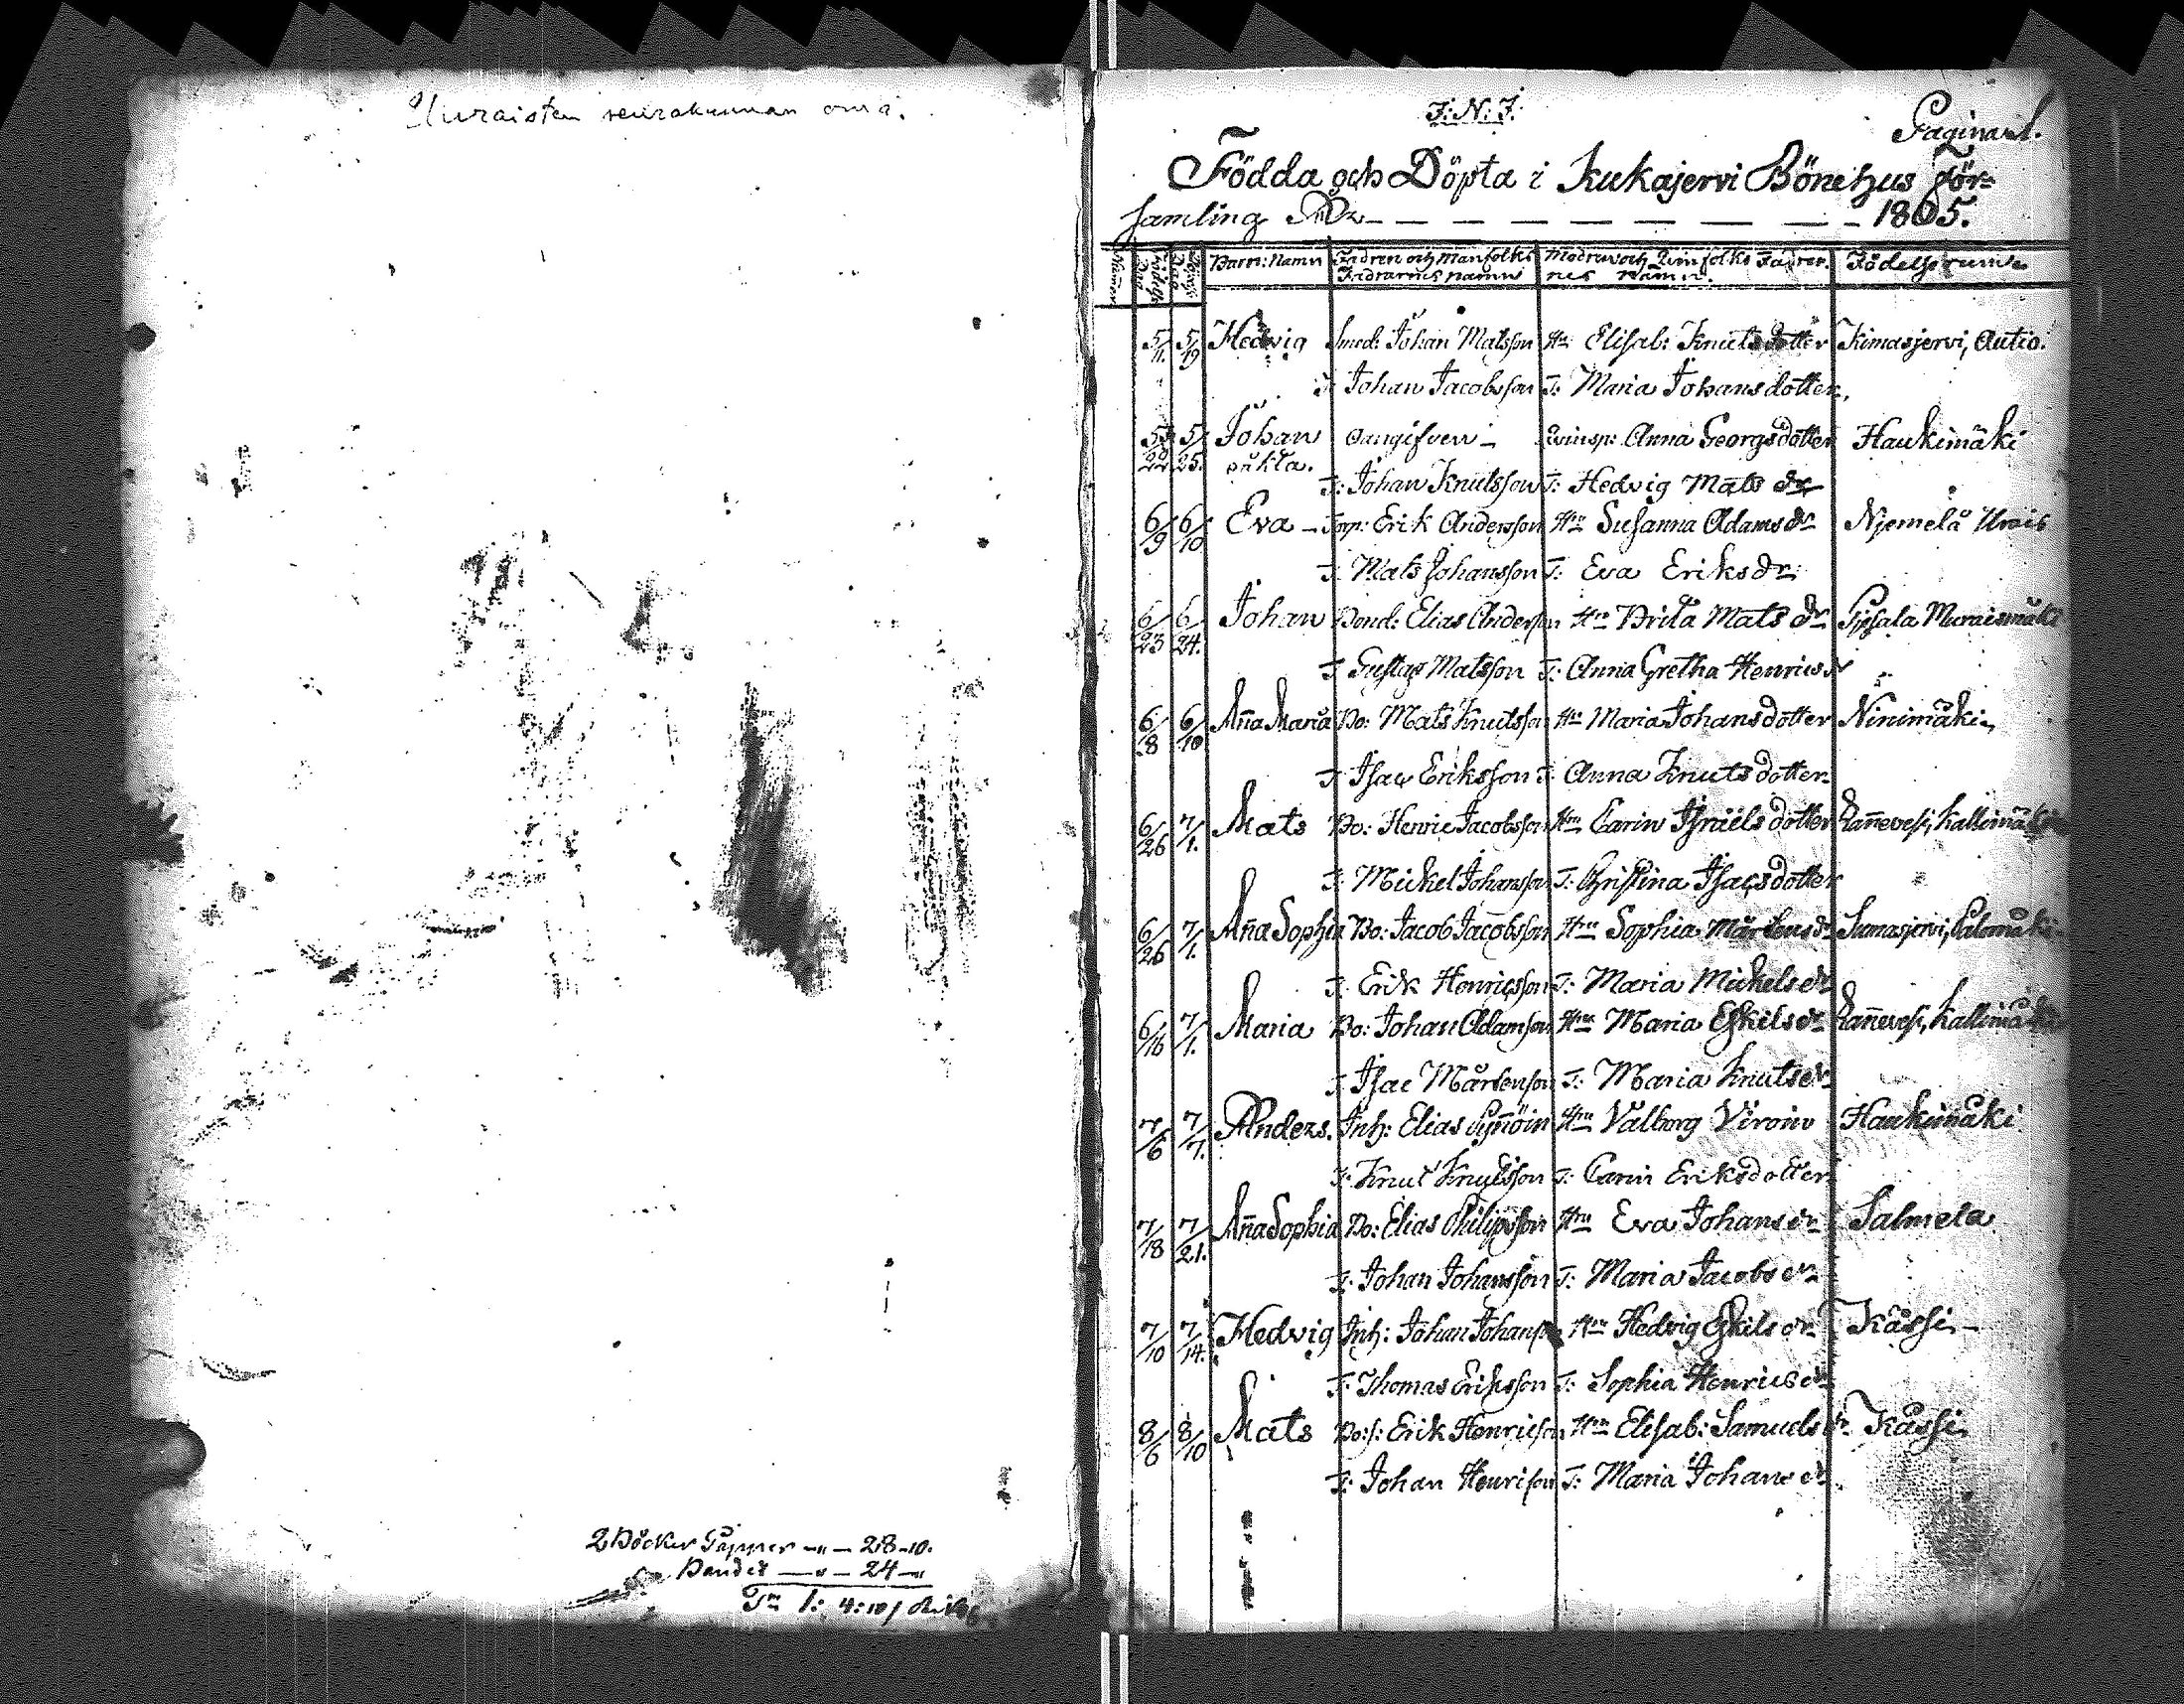 Uuraisten seurakunnan oma.
2 Böcker Papper — 28-10.
Bandet — 24 —
I: N: I:
Pagina 1.
Födda och Döpta i Kukajervi Bönehus För-
samling År — — — — — — — 1805.
Barn: Namn Fadren och Manfolks Modren och Qvinfolks Fadrar.
Fadrarnes namn nes namn.
5/11. 5/19 Hedvig Smed: Johan Matsson Hu Elisab: Knutsdotter Kimasjervi, Autio.
F: Johan Jacobsson F: Maria Johansdotter,
5/22 5/25. Johan oangifven — Qvinsp: Anna Georgsdotter Haukimäki
oäkta.
F: Johan Knutsson F: Hedvig Mats dr
6/9 6/10 Eva — Torp: Erik Andersson Hu Susanna Adams dr Njemelä Urais
F: Mats Johansson F: Eva Eriks dr
6/23 6/24. Johan Bond: Elias Anderson Hu Brita Mats dr Pijsala Muraismäki
F: Gustaf Matsson F: Anna Gretha Henrics dr
6/8 6/10 Aña Maria Bo: Mats Knutsson Hu Maria Johansdotter Ninimäki
F: Isac Eriksson F: Anna Knutsdotter
6/26 7/1. Mats Bo: Henric Jacobsson Hu Carin Israëlsdotter Rañevesi, Kallimäki
F: Mickel Johansson F: Christina Isacsdotter
6/26 7/1. Aña Sophia Bo: Jacob Jacobsson Hu Sophia Mårtens dr Sumasjervi, Palomäki
F: Erik Henricsson F: Maria Mickels dr
6/16 7/1. Maria Bo: Johan Adamson Hu Maria Eskils dr Rañevesi, Kallimäki
F: Isac Mårtenson F: Maria Knuts dr
7/6 7/7. Anders. Inh: Elias Hu Valborg Viroin Haukimäki
F: Knut Knutsson F: Carin Eriksdotter
7/18 7/21. Aña Sophia Bo: Elias Philipsson Hu Eva Johans dr Salmela
F: Johan Johansson F: Maria Jacobs dr
7/10 7/14. Hedvig Inh: Johan Johansson Hu Hedvig Eskils dr Kässi —
F: Thomas Eriksson F: Sophia Henrics dr
8/6 8/10 Mats Bo:s: Erik Henricson Hu Elisab: Samuels dr Kässi
F: Johan Henricson F: Maria Johans dr